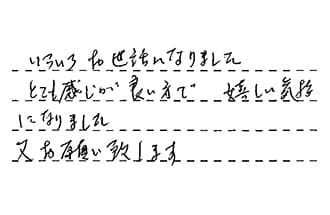 いろいろお世話になりました
とても感じが良い方で 嬉しい気持
になりました
又お願い致します